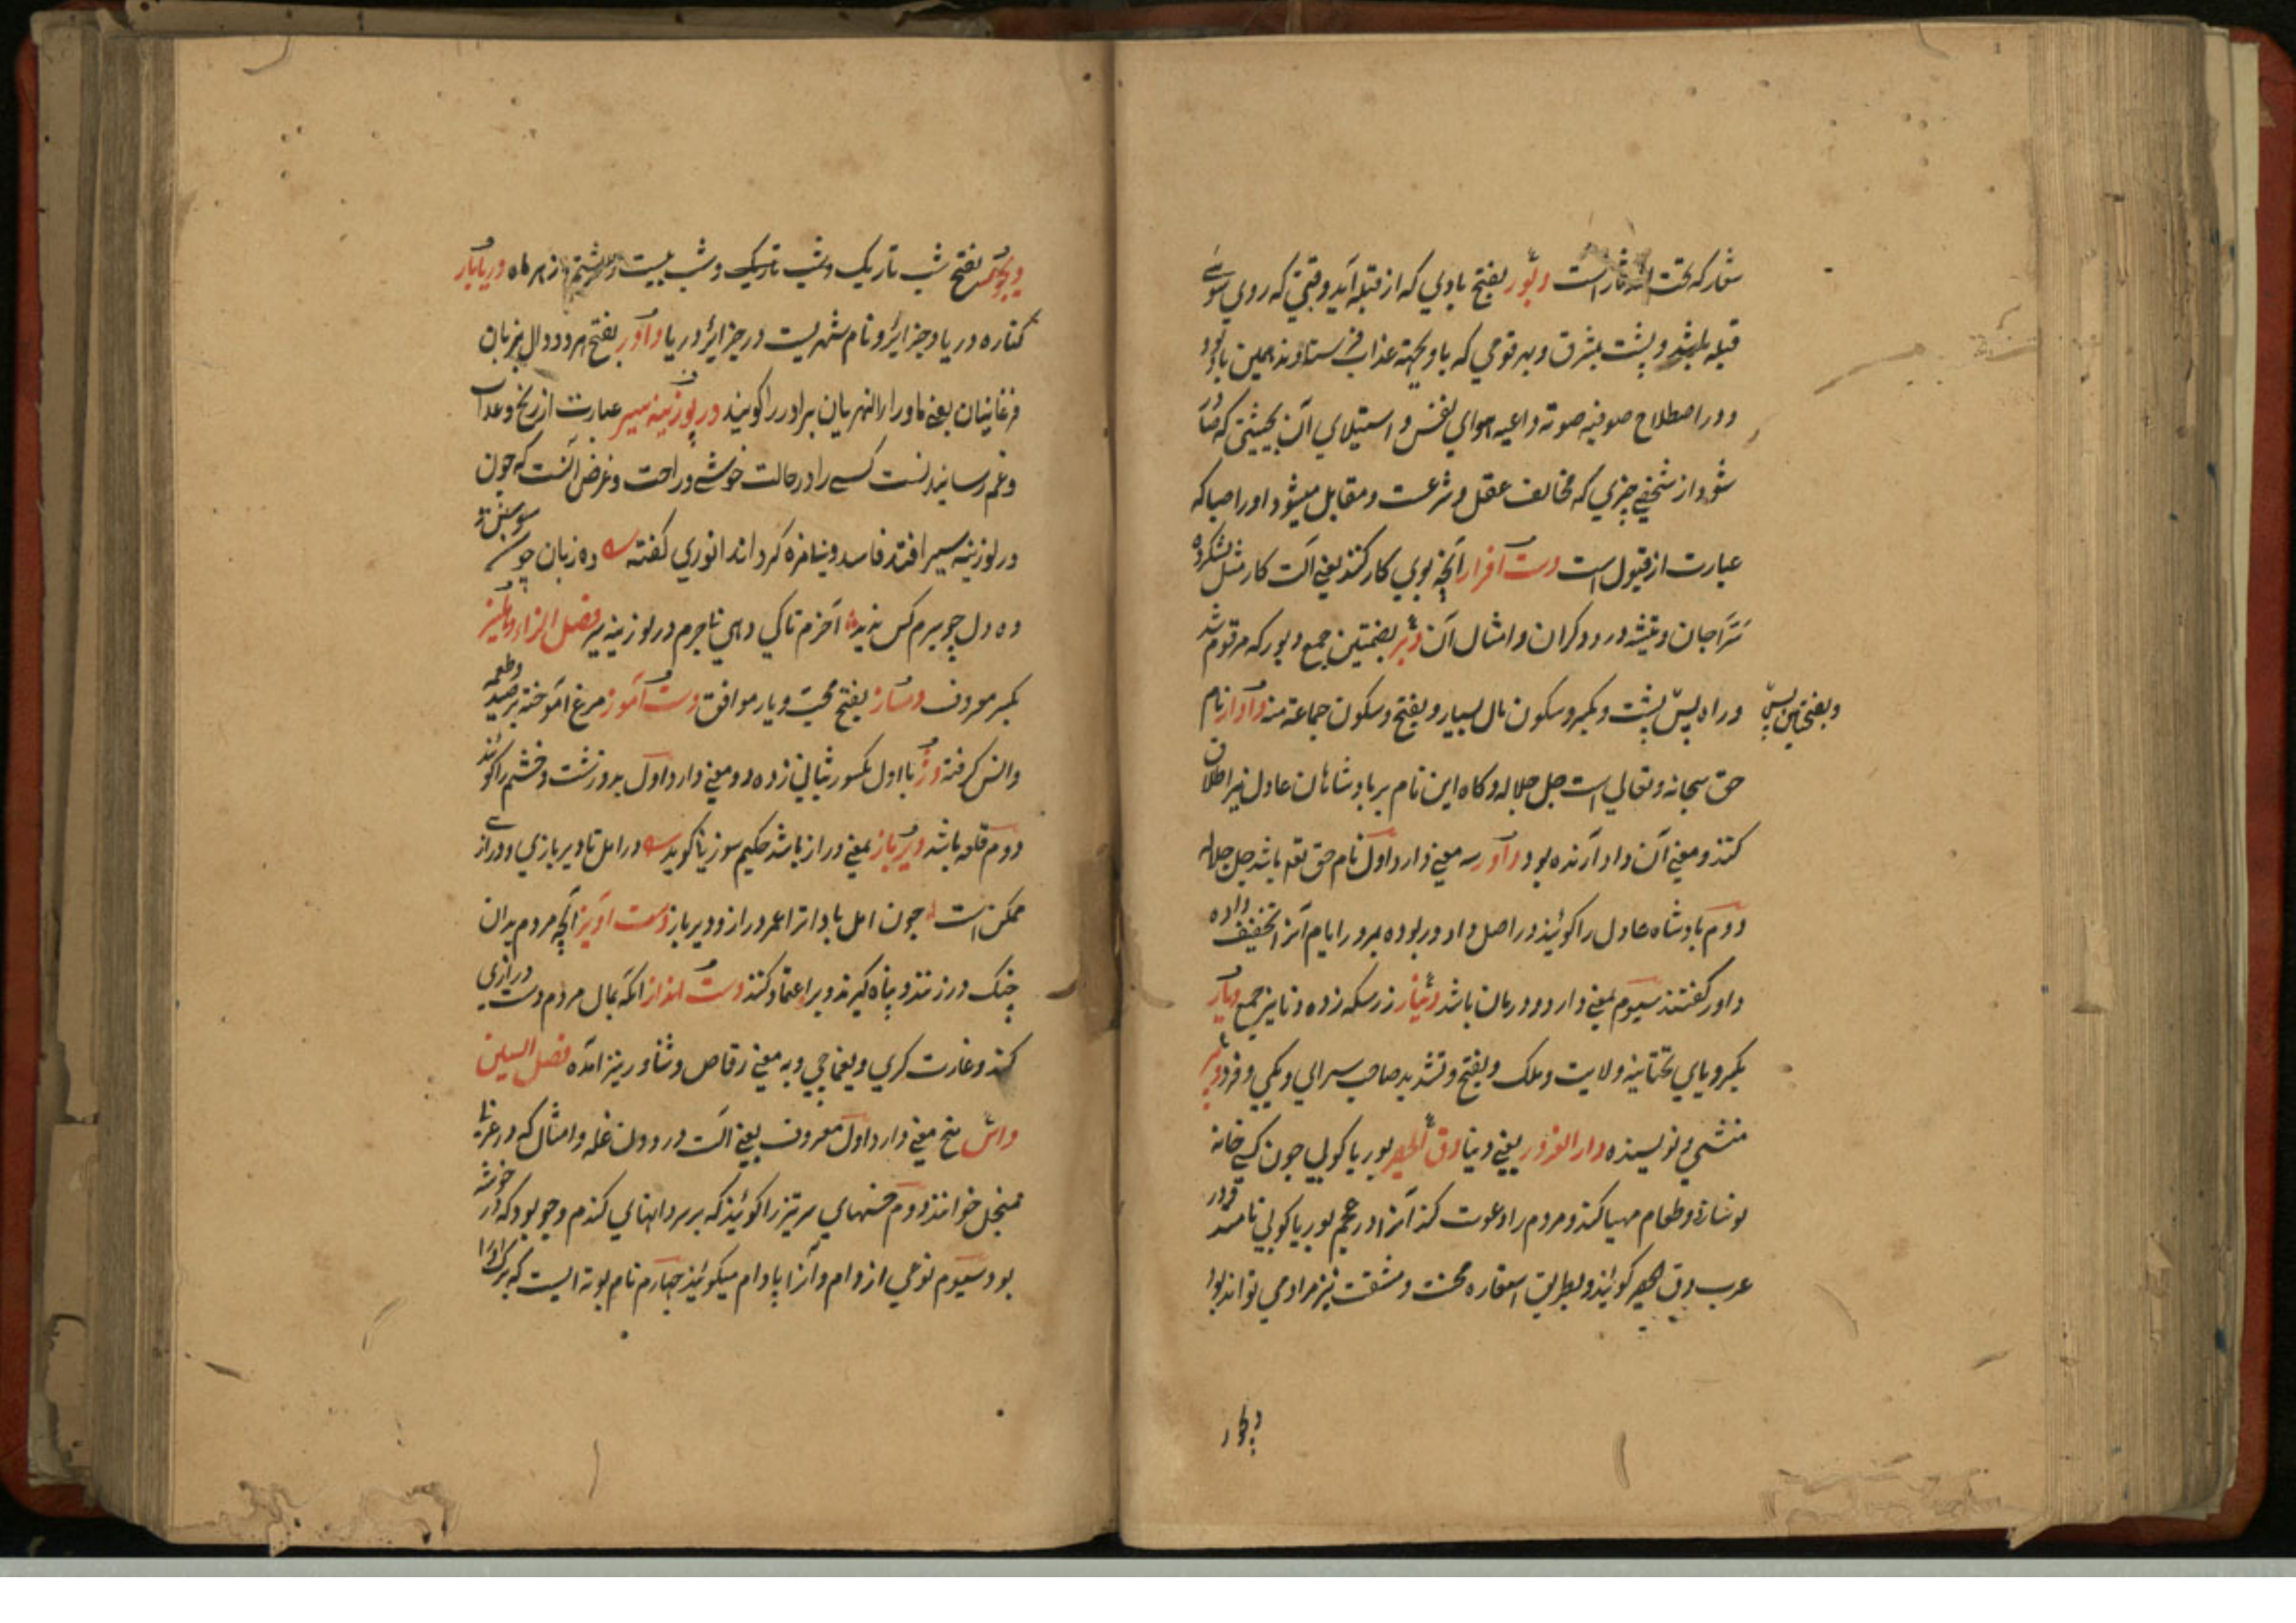 شعار که تحت است دبور بفتح بادي که از قبله آيد وقتي که روي سوي
قبله باشد و پشت بمشرق و بهر قومي که باد بجهته عذاب فرستادند همين باد بود
و در اصطلاح صوفيه صوته داعيه هواي نفس و استيلاي آن بحيثيتي که صادر
شود از شخصي چيزي که مخالف عقل و شرعست و مقابل ميشود او را صبا که
عبارت از قبول است دست افزار آنچه بوي کار کنند يعني آلت کار مثل
سراجان و تيشه درودگران و امثال آن دبر بضمتين جمع دبور که مرقوم شد
وراه پس پشت و بکسر و سکون مال بسيار و بفتح و سکون جماعة منه دادار نام
وبفتحتين پس
حق سبحانه و تعالي است جل جلاله و کاه اين نام بر بادشاهان عادل نيز اطلاق
کنند و معني آن داد آرنده بود داور سه معني دارد اول نام حق تع باشد جل جلاله
دوم بادشاه عادل را کوئيند در اصل داد ور بوده بمرور ايام آنرا تخفيف داده
داور کفتند سيوم بمعني دارو و درمان باشد دينار زر سکه زده دنانير جمع ديار
بکسر و ياي تحتانيه ولايت و ملک و بفتح و تشديد صاحب سراي و يکي و فرد دبير
منشي و نويسنده دار الغرور يعني دنيا دق الحصير بوريا کوبي چون کسي خانه
نو سازد و طعام مهيا کند و مردم را دعوت کند آنرا در عجم بوريا کوبي نامند و در
عرب دق الحصير کوئيند و بطريق استعاره محنت و مشقت نيز مراد مي تواند بود
ديجور
ديجور بفتح شب تاريک و شب تاريک و شب بيست و هشتم از هر ماه دريابار
کناره دريا و جزاير و نام شهريست در جزاير دريا دادر بفتح هر دو دال بزبان
فرغانيان يعني ماوراالنهريان برادر را کويند در لوزينه سير عبارت از رنج و عذاب
و غم رسانيدنست کسي را در حالت خوشي و راحت و غرض آنست که چون
در لوزينه سير افتد فاسد و بيمزه کردانند انوري کفته ده زبان چون سوسن
ده دل چو سيرم کس نديد آخرم تا کي دهي تا جرم در لوزينه سير فصل الزاء دهليز
بکسر معروف دمساز بفتح محب و يار موافق دست آموز مرغ آموخته بر صيد و طعمه
و انس کرفته دژ با اول مکسور بثاني زده دو معني دارد اول بد و زشت و خشم را کوئند
دوم قلعه باشد ديرباز بمعني دراز باشد حکيم سوزني کويد در امل تا ديربازي و درازي
ممکن است چون امل بادا ترا عمر دراز و ديرباز دست آويز آنچه مردم بدان
چنک در زنند و پناه کيرند و بر اعتماد کنند دست انداز آنکه بمال مردم دست درازي
کند و غارت کري و يغماچي و به معني رقاص و شناور نيز آمده فصل السين
داس پنج معني دارد اول معروف يعني آلت درودن غله و امثال که در عربي
منجل خوانند دوم خسهاي سرتيز را کوئيند که بر سر دانهاي کندم و جو بود که در خوشه
بود سيوم نوعي از دام و آنرا پادام ميکوئيند چهارم نام بوته ايست که برک او را